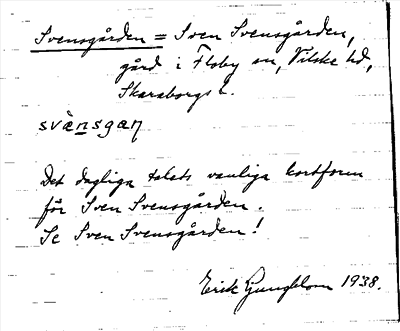 Svensgården = Sven Svensgården,
gård i Floby sn, Vilske hd,
Skaraborgs l.
svänsgan
Det dagliga talets vanliga kortform
för Sven Svensgården.
Se Sven Svensgården!
Erik Ljungblom 1938.